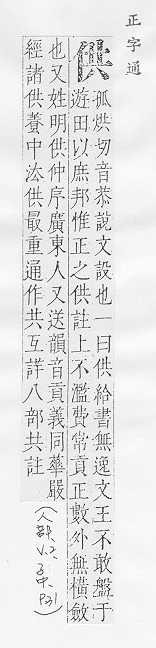 正字通
供 孤烘切音恭說文設也一曰供給書無逸文王不敢盤于
遊田以庶邦惟正之供註上不濫費常貢正數外無橫斂
也又姓明供仲序廣東人又送韻音貢義同華嚴
經諸供養中法供最重通作共互詳八部共註
(人部 V.2 子中 P.31)